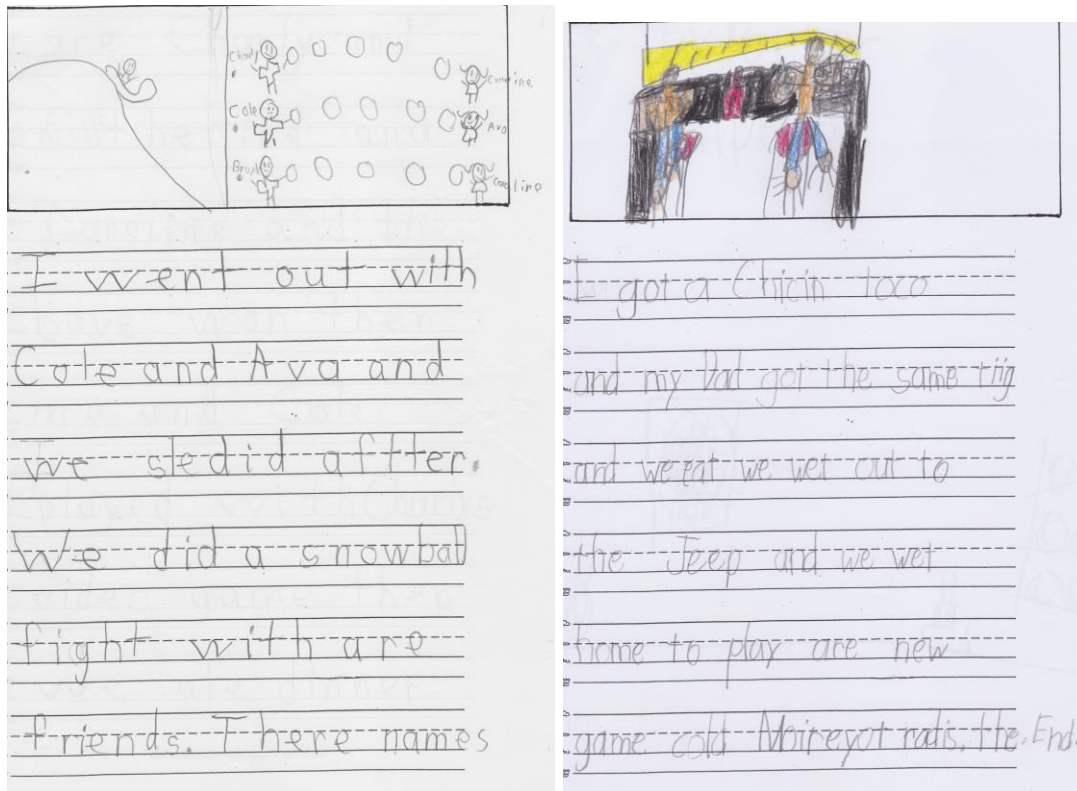 Charly
Cole
Brody
Ava
I went out with
Cole and Ava and
We sledid affter.
We did a snowball
fight with are
friends. There names
I got a Chicin taco
and my Dad got the same tiig
and we eat we wet out to
the Jeep and we wet
home to play are new
game cold radis. the. End.